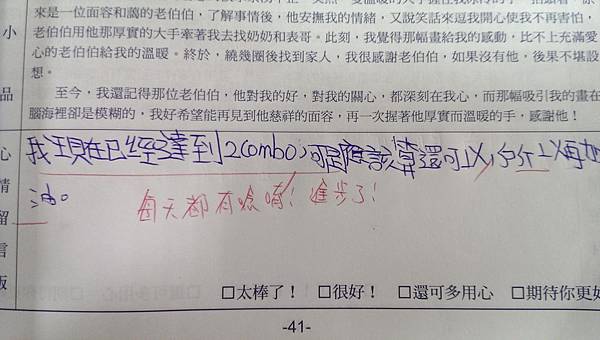 來是一位面容和藹的老伯伯,了解事情後,他安撫我的情緒,又說笑話來逗我開心使我不再害怕,
老伯伯用他那厚實的大手牽著我去找奶奶和表哥。此刻,我覺得那幅畫給我的感動,比不上充滿愛
心的老伯伯給我的溫暖。終於,繞幾圈後找到家人,我很感謝老伯伯,如果沒有他,後果不堪設
想。
至今,我還記得那位老伯伯,他對我的好,對我的關心,都深刻在我心,而那幅吸引我的畫在
腦海裡卻是模糊的,我好希望能再見到他慈祥的面容,再一次握著他厚實而溫暖的手,感謝他!
小
品
心
情
留
言
版
我現在已經達到2Combo,可是應該算還可以,所以再加
油。
每天都有唸唷!進步了!
□太棒了! □很好! □還可多用心 □期待你更好
-41-